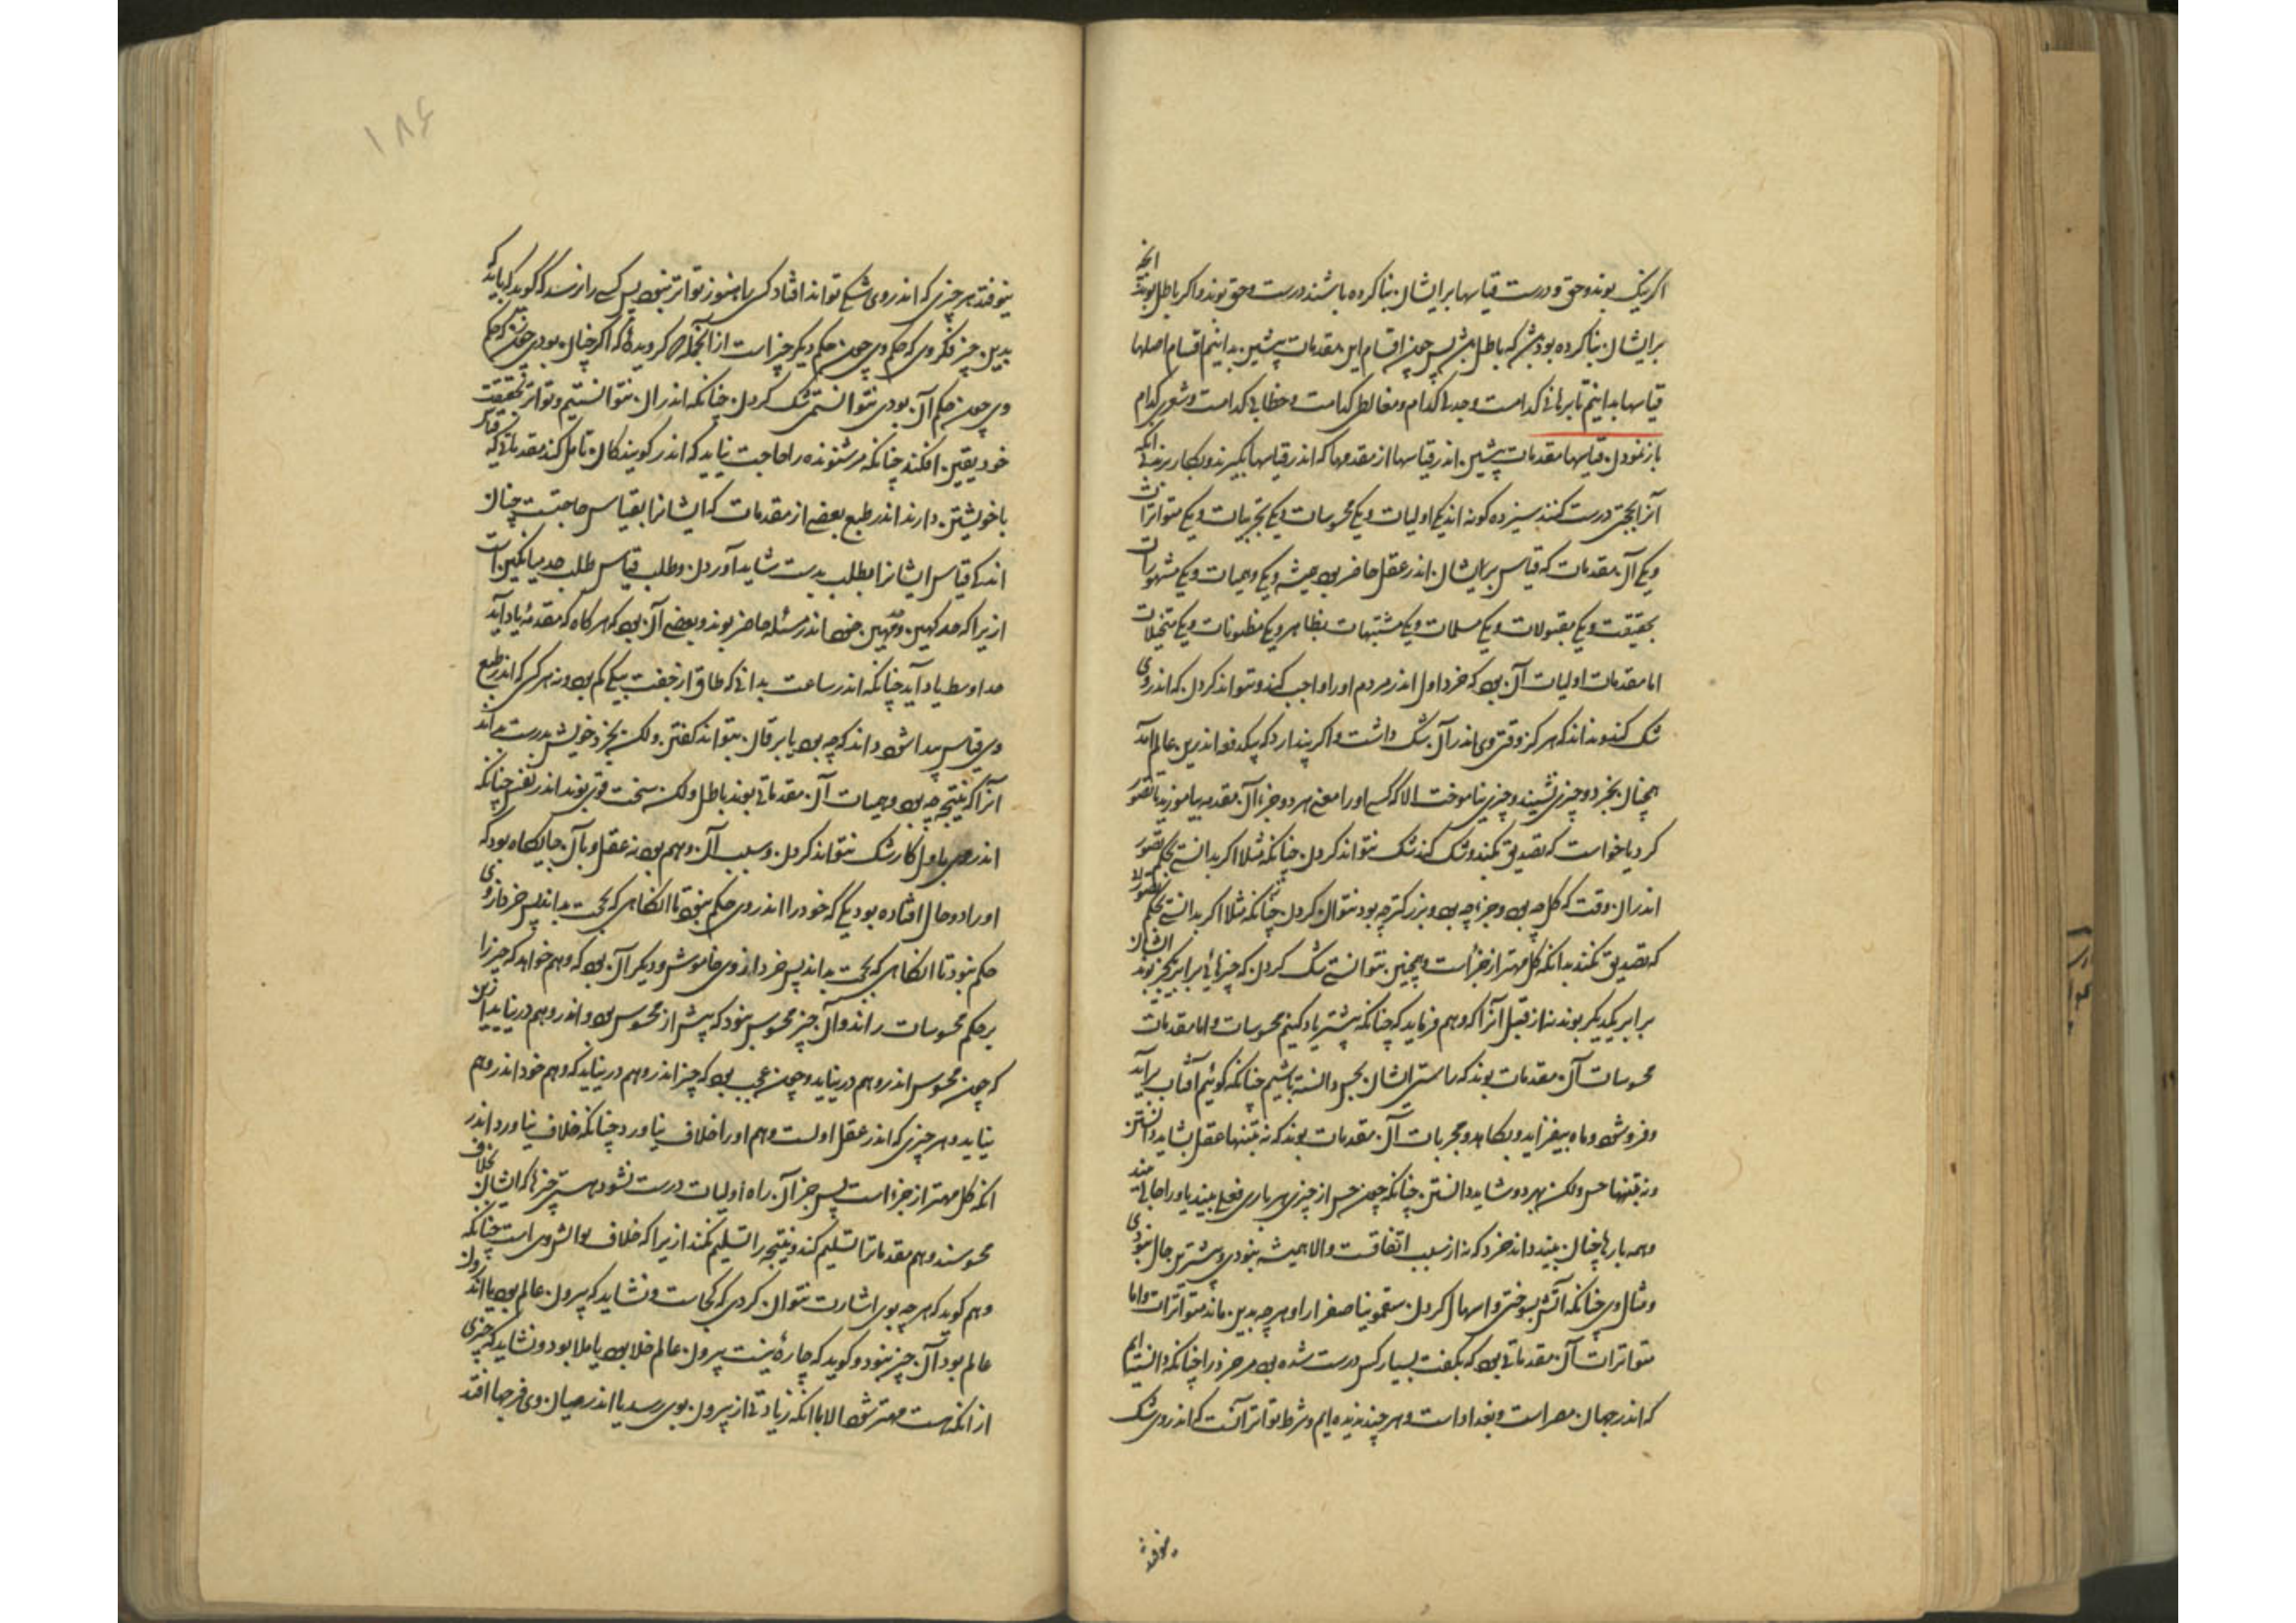 اگر نیک بوند و حق و درست قیاسها بر ایشان بنا کرده باشند درست و حق بوند و اگر باطل بوند آنچه
بر ایشان بنا کرده بود باطل پس چون اقسام این مقدمات پیشین بدانیم اقسام اصلها
قیاسها بدانیم تا برهانی کدامست و جدلی کدام و مغالطی کدامست و خطابی کدامست و شعری کدام
باز نمودن قیاسها مقدمات پیشین اندر قیاسها از مقدمها که اندر قیاسها بگیرند و بکار برند بی آنکه
آنرا بحجتی درست کنند سیزده گونه اند یکی اولیات و یکی محسوسات و یکی تجربیات و یکی متواترات
و یکی آن مقدمات که قیاس بر ایشان اندر عقل حاضر بود همیشه و یکی وهمیات و یکی مشهورات
بحقیقت و یکی مقبولات و یکی مسلمات و یکی مشتبهات بظاهر و یکی مظنونات و یکی متخیلات
اما مقدمات اولیات آن بود که خرد اول اندر مردم او را واجب کند و نتواند کردن که اندر وی
شک کند و نداند که هرگز وقتی وی اندر آن شک داشت و اگر پندارد که بیک دفعه اندرین عالم آمد
همچنان بخرد و چیزی نشنید و چیزی نیاموخت الا که کسی او را معنی هر دو جزء آن مقدمه بیاموزید تا تصور
کرد یا خواست که تصدیق نکند و شک کند شک نتواند کردن چنانکه مثلا اگر بدانستی بحکم تصور
اندر آن وقت که کل چه بود و جزء چه بود و بزرگتر چه بود نتوان کردن چنانکه مثلا اگر بدانستی بحکم تصور
که تصدیق نکند بدانکه کل مهتر از جزء است و همچنین نتوانستی شک کردن که چیزهائی برابر یک چیز بوند ایشان
برابر یکدیگر بوند نه از قبل آنرا که وهم فرماید که چنانکه پیشتر یاد کنیم محسوسات و اما مقدمات
محسوسات آن مقدمات بوند که راستی ایشان بحس دانسته باشیم چنانکه گوئیم آفتاب برآید
و فرو شود و ماه بیفزاید و بکاهد و مجربات آن مقدمات بوند که نه بتنها عقل بشاید دانستن
و نه بتنها حس ولکن بهر دو شاید دانستن چنانکه چون حس از چیزی هر باری فعلی بیند یا او را حالی بیند
و همه بارها چنان بیند داند خرد که نه از سبب اتفاقست والا همیشه نبودی و بیشترین حال نبودی
و مثال وی چنانکه آتش بسوختن و اسهال کردن سقمونیا صفرا را و هر چه بدین ماند متواترات و اما
متواترات آن مقدماتی بود که بگفت بسیار کس درست شده بود مر خرد را چنانکه دانسته ایم
که اندر جهان مصر است و بغداد است و هر چند ندیده ایم و شرط تواتر آنست که اندر وی شک
نیوفتد
۱۸۶
نیوفتد هر چیزی که اندر وی شکی تواند افتاد کس را هنوز تواتر نبود پس کسی را نرسد که گوید که باید که
بدین چیز فگروی که حکم وی چون حکم دیگر چیز است از آنجمله که گرویده که اگر چنان بودی چون که حکم
وی چون حکم آن بودی نتوانستی شک کردن چنانکه اندر آن نتوانستیم و تواتر بحقیقت
خود یقین افکند چنانکه مر شنونده را حاجت نیاید که اندر گویندگان تامل کند مقدماتی که قیاس
با خویشتن دارند اندر طبع بعضی از مقدمات که ایشانرا بقیاس حاجتست چنان
اند که قیاس ایشانرا بطلب بدست شاید آوردن و طلب قیاس طلب حد میانگین است
ازیرا که حد کهین و مهین خود اندر مسئله حاضر بوند و بعضی آن بود که هر گاه که مقدمه یاد آید
حد اوسط یاد آید چنانکه اندر ساعت بدانی که طاق از جفت بیکی کم بود و نه هر کسی که اندر طبع
وی قیاس پیدا شود داند که چه بود یا بزفان بتواند گفتن ولکن بخرد خویش بدرست بداند
آنرا که نتیجه چه بود وهمیات آن مقدماتی بوند باطل ولکن سخت قوی بوند اندر نفس چنانکه
اندر وی باول کار شک نتواند کردن و سبب آن وهم بود نه عقل و بآن جایگاه بود که
او را دو حال افتاده بود یکی که خود را اندر وی حکم نبود تا آنگاهی که بحجت بداند پس خرد از وی
حکم نبود تا آنگاهی که بحجت بداند پس خرد از وی خاموش و دیگر آن بود که وهم خواهد که چیز را
بر حکم محسوسات راند و آن چیز محسوس نبود که پیش از محسوس بود و اندر وهم در نیاید ازین
که چون محسوس اندر وهم در نیاید و چون عجب بود که چیز اندر وهم در نیاید که وهم خود اندر وهم
نیاید و هر چیزی که اندر عقل اولست وهم او را خلاف نیاورد چنانکه خلاف نیاورد اندر
آنکه کل مهتر از جزء است پس جز آن راه اولیات درست نشود هستی چیزها که ایشان بخلاف
محسوسند وهم مقدماتها تسلیم کند و نتیجه را تسلیم نکند ازیرا که خلاف توانش وی است چنانکه
وهم گوید که هر چه بوی اشارت نتوان کردی که کجاست و نشاید که بیرون عالم بود یا اندرون
عالم بود آن چیز نبود و گوید که چاره نیست بیرون عالم خلا بود یا ملا بود و نشاید که چیزی
از آنکه هست مهتر شود الا با آنکه زیادتی از بیرون بوی رسد یا اندر میان وی فرجها افتد